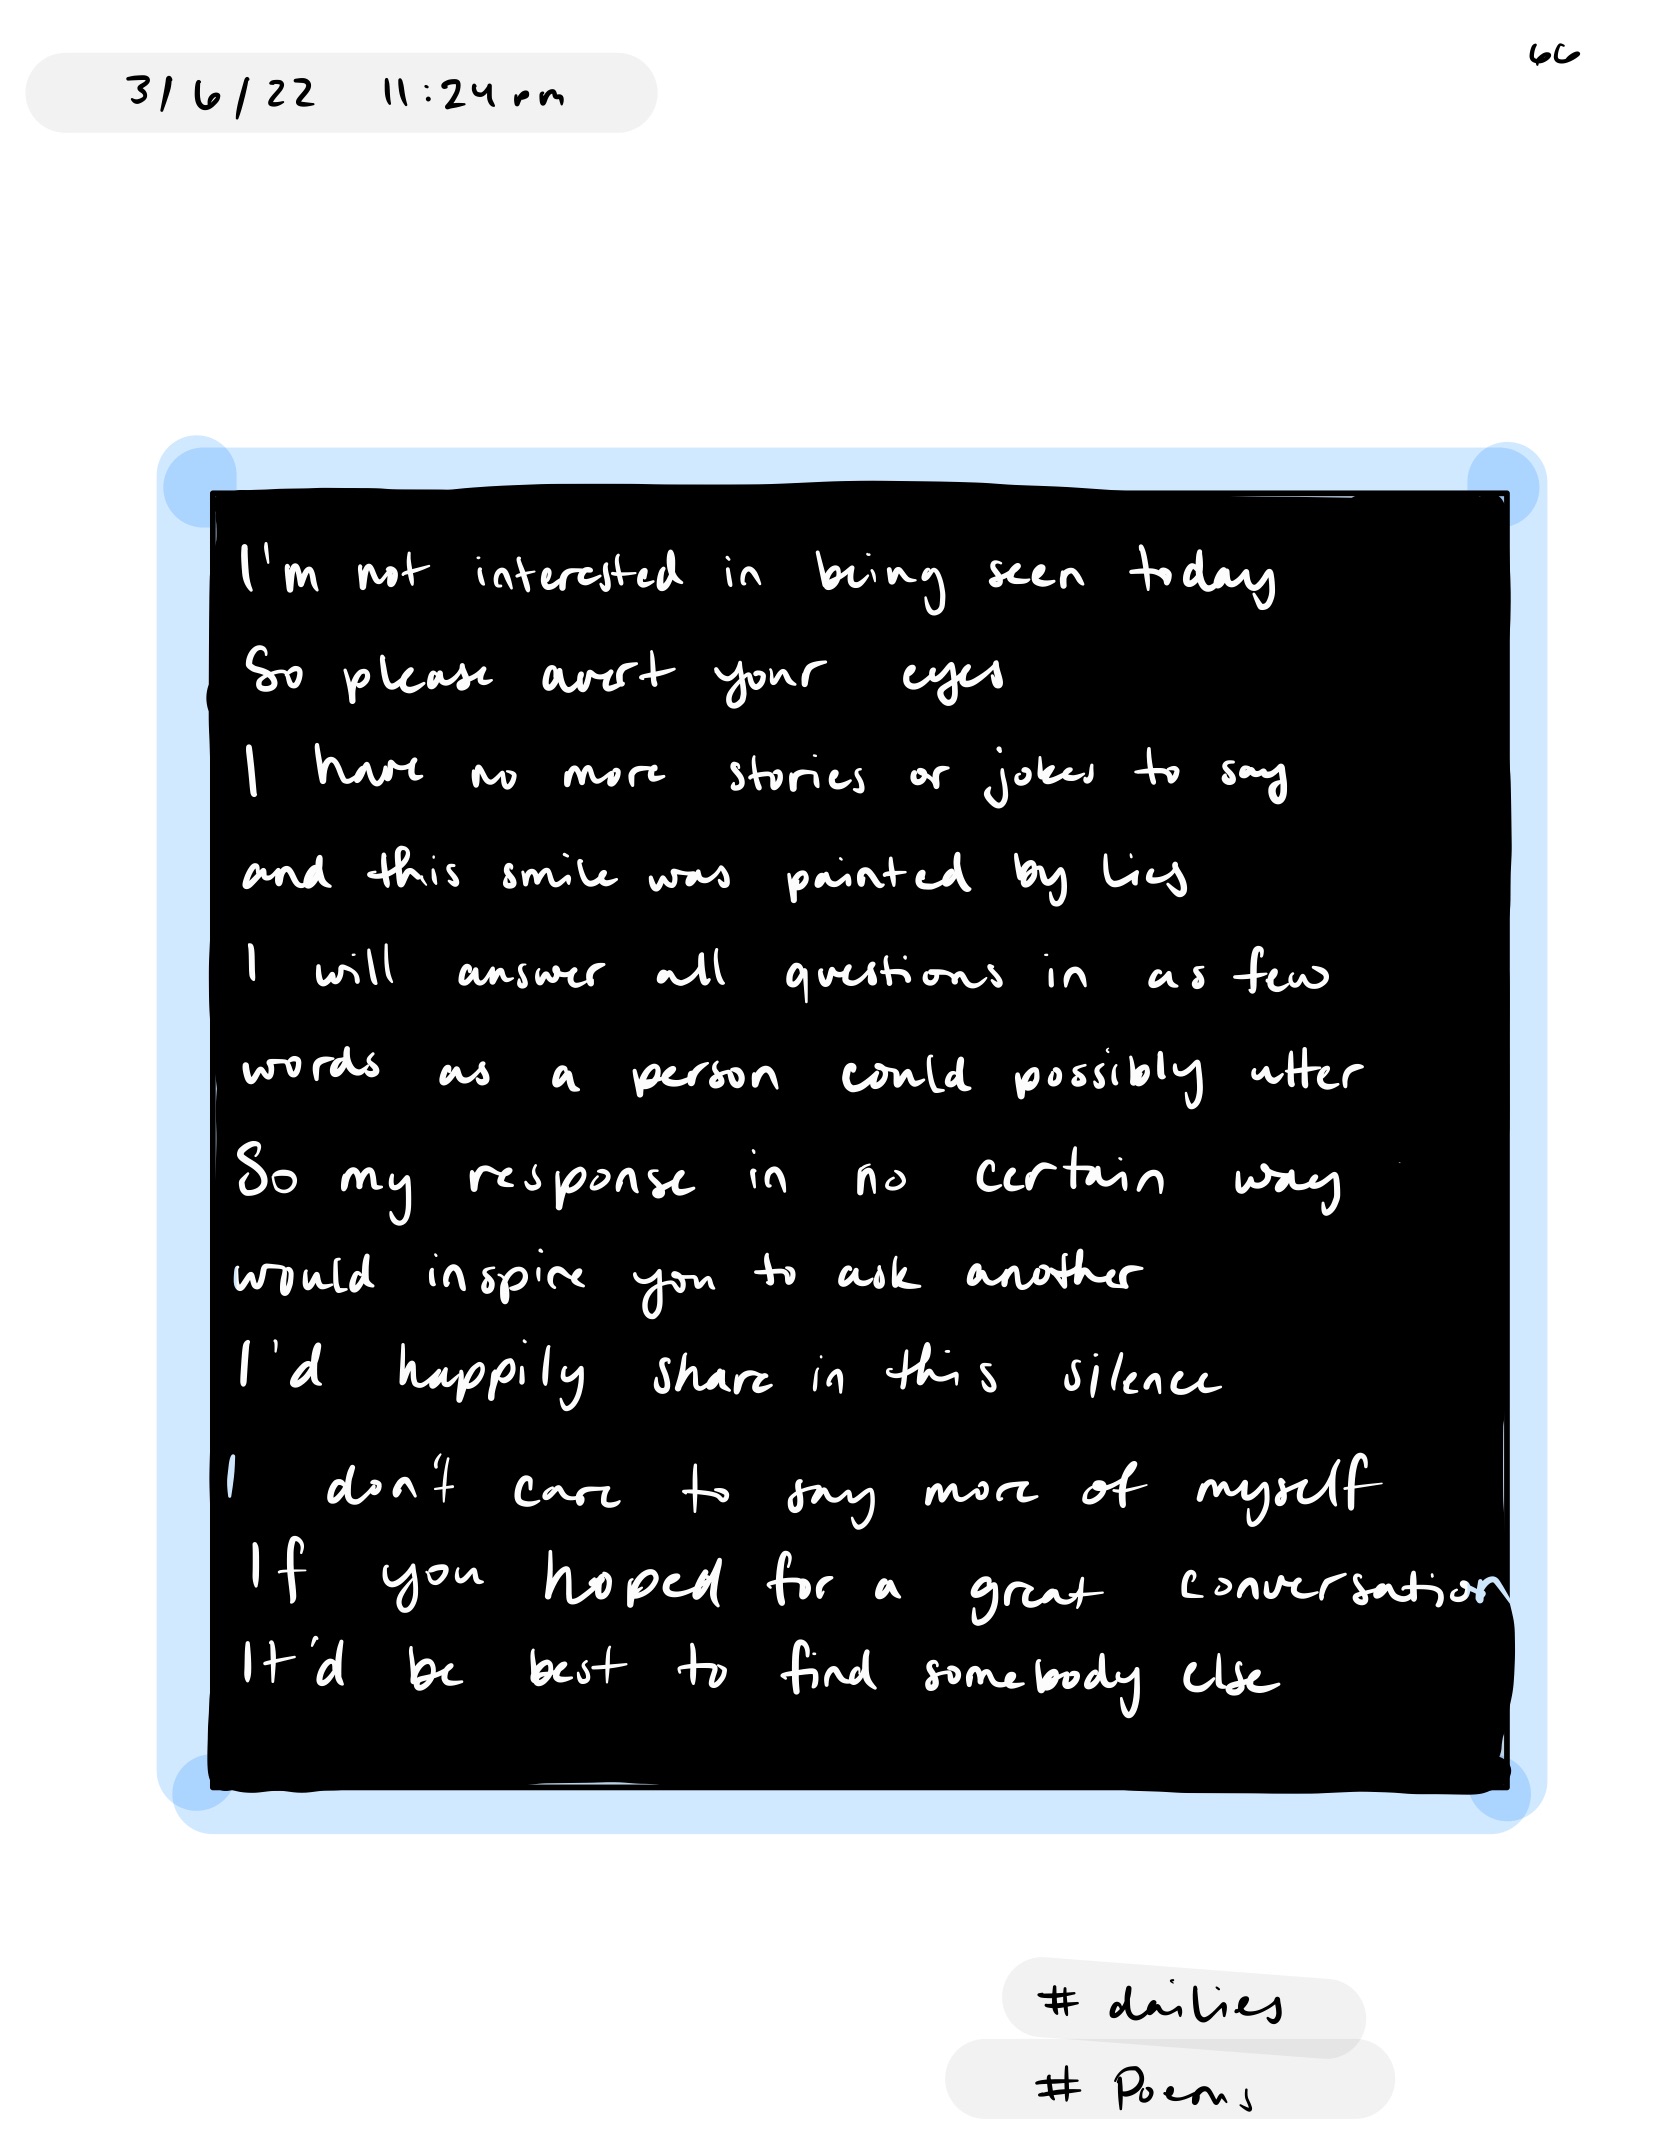 3/6/22 11:24 pm
66
I'm not interested in being seen today
So please avert your eyes
I have no more stories or jokes to say
and this smile was painted by lies
I will answer all questions in as few
words as a person could possibly utter
So my response in no certain way
would inspire you to ask another
I'd happily share in this silence
I don't care to say more of myself
If you hoped for a great conversation
It'd be best to find somebody else
# dailies
# Poems